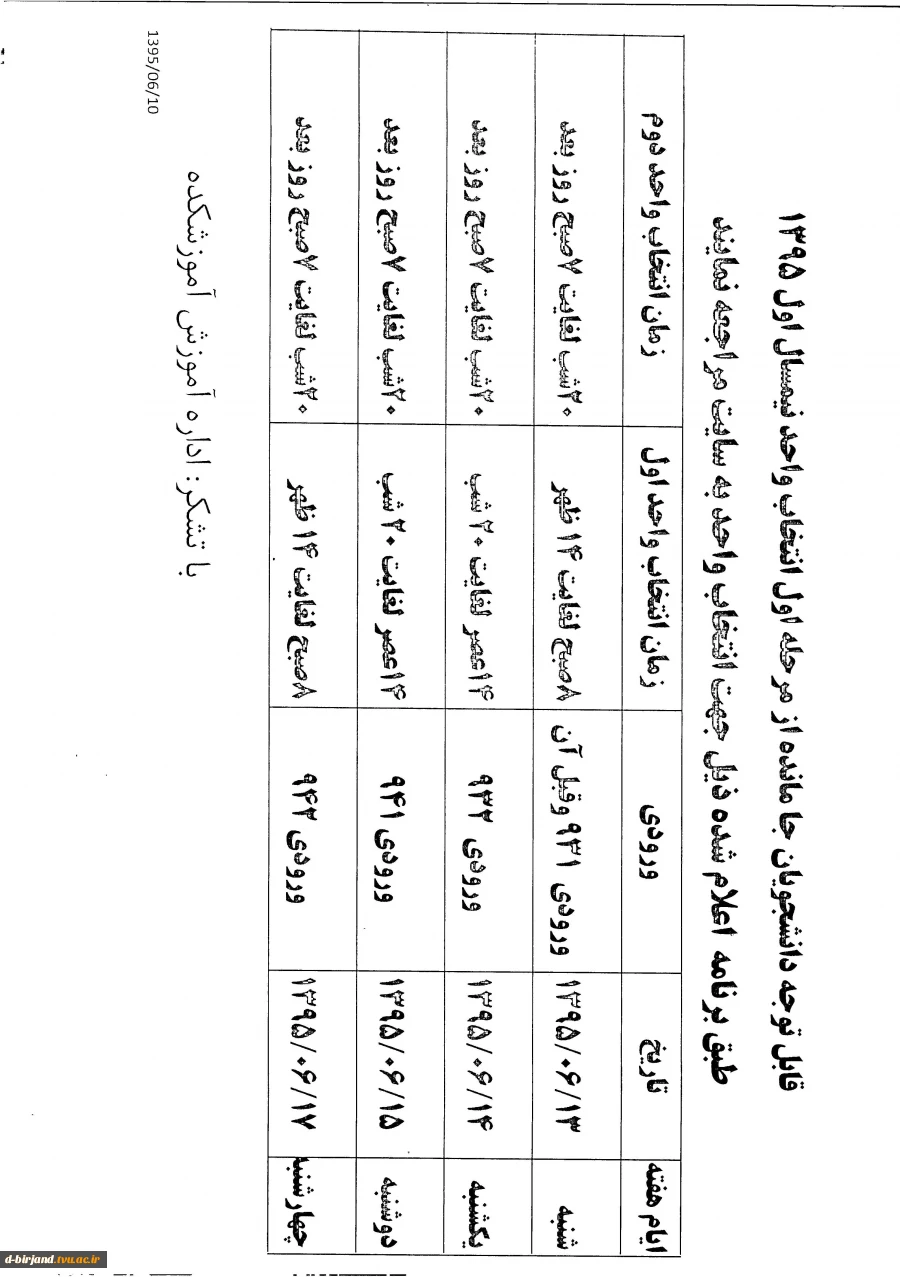 قابل توجه دانشجویان جا مانده از مرحله اول انتخاب واحد نیمسال اول ۱۳۹۵
طبق برنامه اعلام شده ذیل جهت انتخاب واحد به سایت مراجعه نمایند
ایام هفته تاریخ ورودی زمان انتخاب واحد اول زمان انتخاب واحد دوم
شنبه ۱۳۹۵/۰۶/۱۳ ورودی ۹۳۱ وقبل آن ۸صبح لغایت ۱۴ ظهر ۲۰شب لغایت ۷صبح روز بعد
یکشنبه ۱۳۹۵/۰۶/۱۴ ورودی ۹۳۲ ۱۴عصر لغایت ۲۰ شب ۲۰شب لغایت ۷صبح روز بعد
دوشنبه ۱۳۹۵/۰۶/۱۵ ورودی ۹۴۱ ۱۴عصر لغایت ۲۰ شب ۲۰شب لغایت ۷صبح روز بعد
چهارشنبه ۱۳۹۵/۰۶/۱۷ ورودی ۹۴۲ ۸صبح لغایت ۱۴ ظهر ۲۰شب لغایت ۷صبح روز بعد
با تشکر: اداره آموزش آموزشکده
1395/06/10
d-birjand.tvu.ac.ir